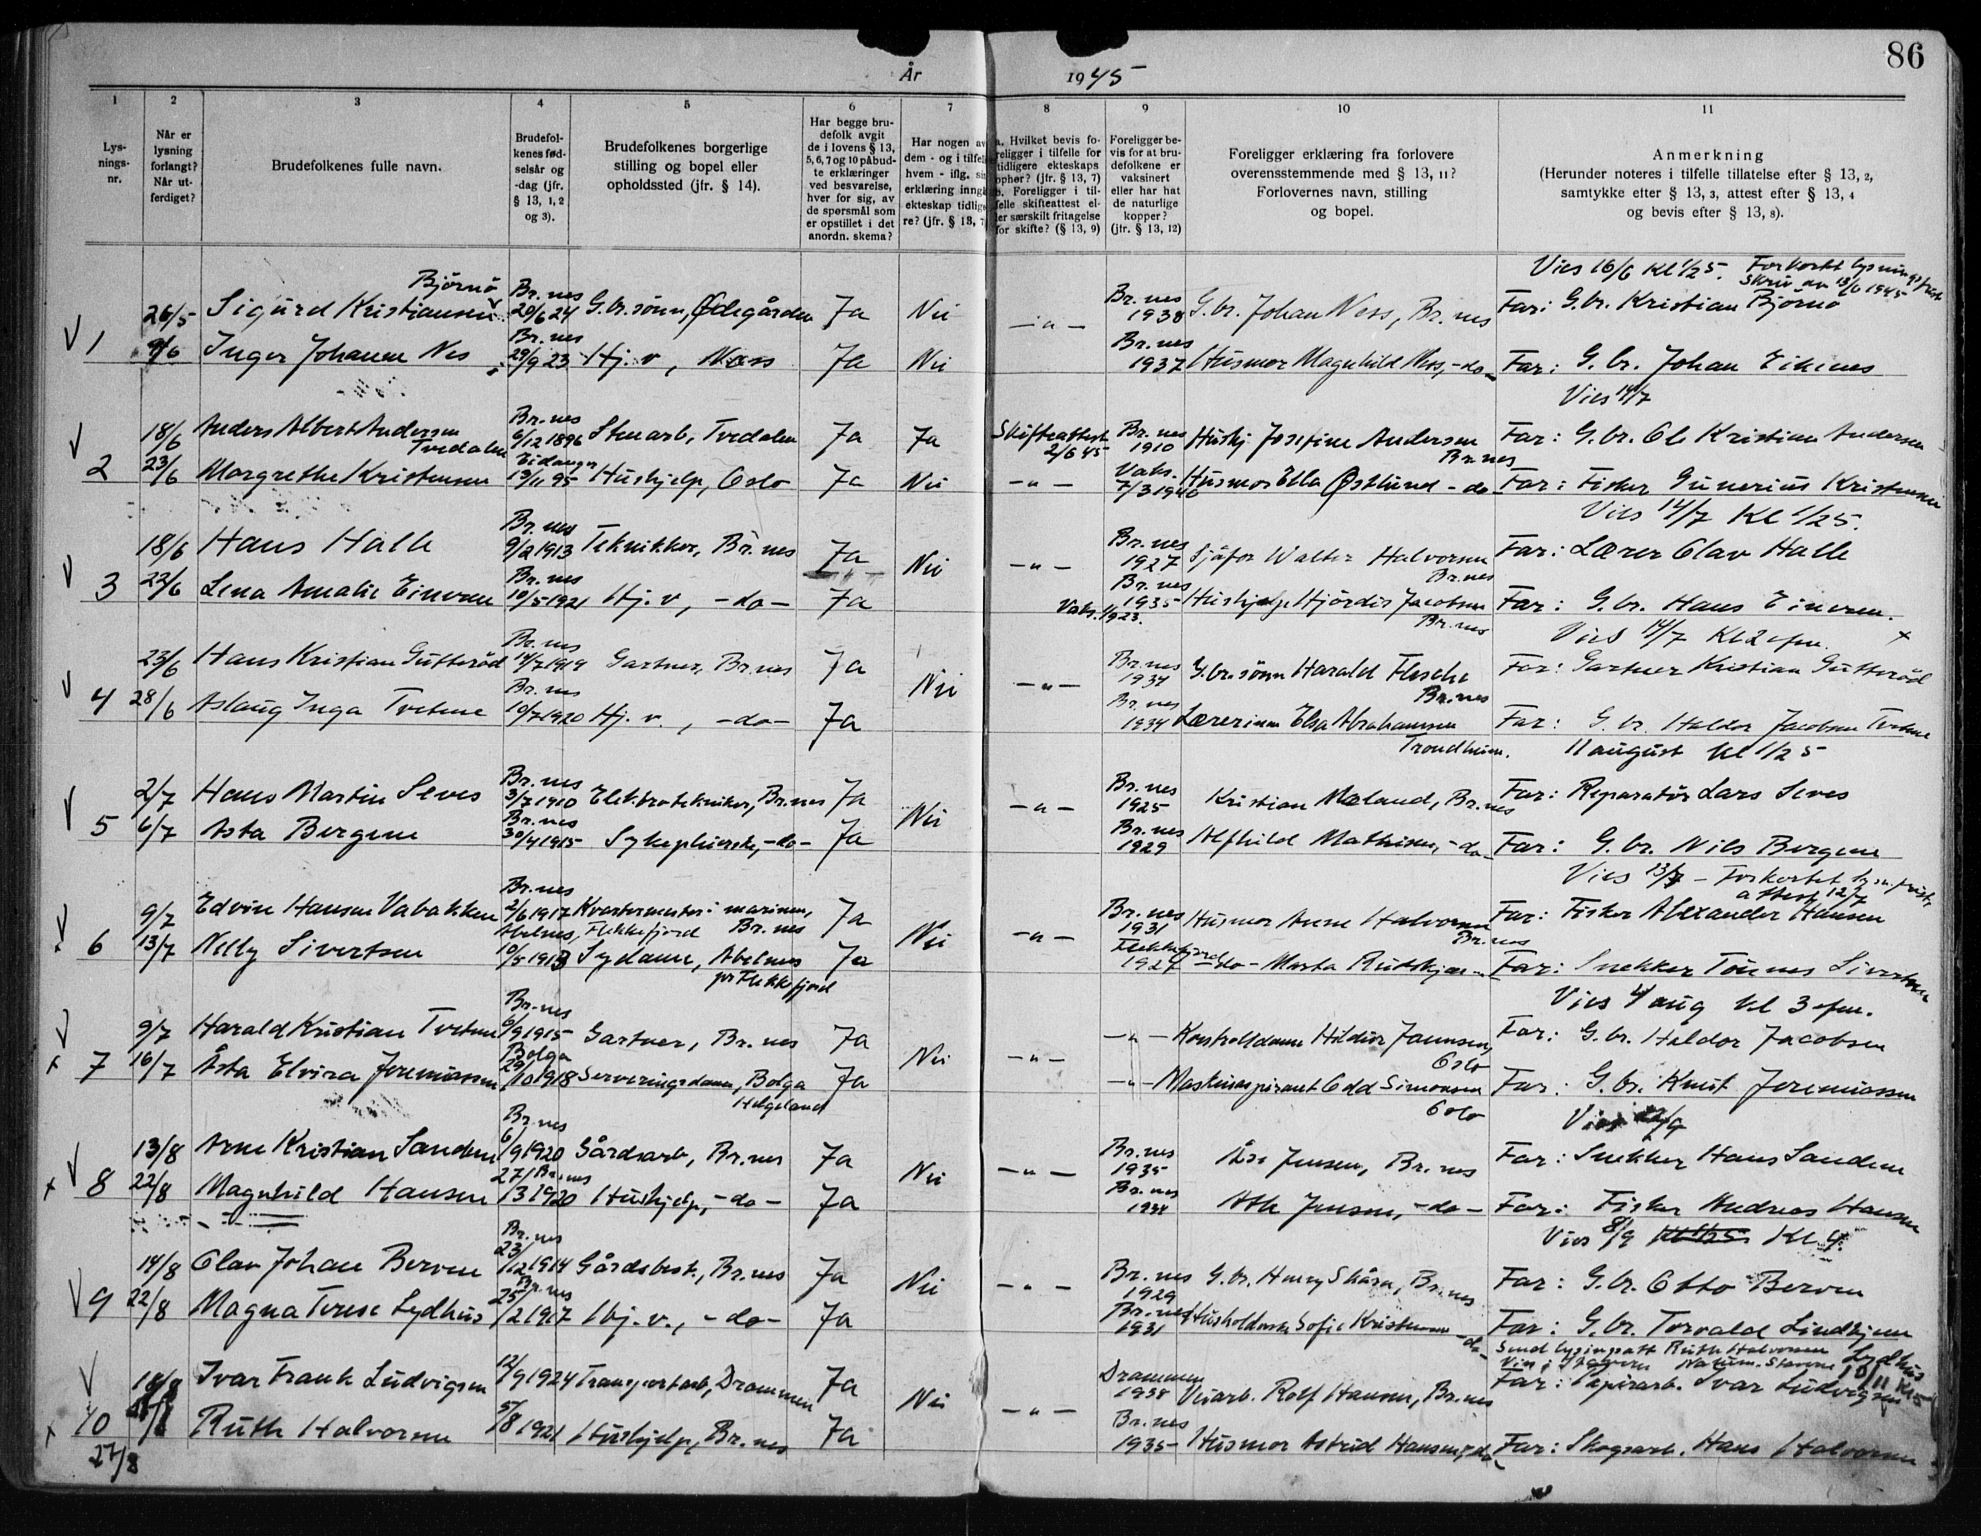 86
År 1945
1 2 3 4 5 6 7 8 9 10 11
Lysningsnr.
Når er lysning forlangt? Når utferdiget?
Brudefolkenes fulle navn.
Brudefolkenes fødselsår og -dag (jfr. § 13, 1, 2 og 3).
Brudefolkenes borgerlige stilling og bopel eller opholdssted (jfr. § 14).
Har begge brudefolk avgit de i lovens § 13, 5, 6, 7 og 10 påbudte erklæringer ved besvarelse, hver for sig, av de spørsmål som er opstillet i det anordn. skema?
Har nogen av dem - og i tilfelle hvem - iflg. sin erklæring inngå ekteskap tidligere? (jfr. § 13, 7)
a. Hvilket bevis foreligger i tilfelle for tidligere ekteskaps ophør? (jfr. § 13, 7)
b. Foreligger i tilfelle skifteattest eller særskilt fritagelse for skifte? (§ 13, 9)
Foreligger bevis for at brudefolkene er vaksinert eller har hat de naturlige kopper? (jfr. § 13, 12)
Foreligger erklæring fra forlovere overensstemmende med § 13, 11? Forlovernes navn, stilling og bopel.
Anmerkning
(Herunder noteres i tilfelle tillatelse efter § 13, 2, samtykke efter § 13, 3, attest efter § 13, 4 og bevis efter § 13, 8).
Vies 16/6 Kl 1/2 5. Forkortet lysningsfrist
Skriv av 13/6 1945
V 1 26/5 Sigurd Kristiansen Bjørnø Br.nes 20/6 24 G.br.sønn, Ødegården Ja Nei - " - Br.nes 1938 G.br. Johan Ness, Br.nes Far: G.br. Kristian Bjørnø
9/6 Inger Johanne Nes Br.nes 29/9 23 Hj.v., Ness Ja Nei Br.nes 1937 Husmor Magnhild Nes, -do- Far: G.br. Johan Eikenes
Vies 14/7
V 2 18/6 Anders Albert Andersen Tvedalen Br.nes 6/12 1896 Stenarb, Tvedalen Ja Ja Skifteattest 2/6 45 Br.nes 1910 Hushj Josefine Andersen Br.nes Far: G.br. Ole Kristian Andersen
23/6 Margrethe Kristensen Eidanger 13/11 95 Hushjelp, Oslo Ja Nei - " - Vaks. 7/3 1940 Husmor Ella Østlund -do- Far: Fisker Gunerius Kristensen
Vies 14/7 Kl 1/2 5.
V 3 18/6 Hans Halle Br.nes 9/2 1913 Tekniker, Br.nes Ja Nei - " - Br.nes 1927 Sjåfør Walter Halvorsen Br.nes Far: Lærer Olav Halle
22/6 Lena Amalie Einvren Br.nes 10/5 1921 Hj.v, -do- Ja Vaks. 1/9 23. Br.nes 1935 Hushjelp Hjördis Jacobsen Br.nes Far: G.br. Hans Einvren.
Vies 14/7 Kl 2 efm. x
V 4 23/6 Hans Kristian Gutterød Br.nes 14/7 1919 Gartner, Br.nes Ja Nei - " - Br.nes 1934 G.br.sønn Harald Flesche Br.nes Far: Gartner Kristian Gutterød
28/6 Aslaug Inga Tvetene Br.nes 10/7 1920 Hj.v., -do- Ja Br.nes 1934 Lærerinne Elsa Abrahamsen Trondheim. Far: G.br. Haldor Jacobsen Tvetene
11 august kl 1/2 5
V 5 2/7 Hans Martin Seves Br.nes 3/7 1910 Elektrotekniker, Br.nes Ja Nei - " - Br.nes 1925 Kristian Mæland, Br.nes Far: Reparatør Lars Seves
6/7 Asta Bergene Br.nes 30/4 1915 Sykepleierske, -do- Ja Br.nes 1929 Alfhild Mathisen, -do- Far: G.br. Nils Bergene
Vies 13/7 - Forkortet lysn.frist,
attest 12/7
V x 6 9/7 Edvin Hansen Vabakken Br.nes 2/6 1917 Kvartermester i marinen, Br.nes Ja Nei - " - Br.nes 1931 Husmor Anne Halvorsen Br.nes Far: Fisker Alexander Hansen
13/7 Nelly Sivertsen Abelnes, Flekkefjord 10/5 1913 Sydame, Abelnes pr Flekkefjord Ja Flekkefjord 1927 -do- Marta Rudskjær Far: Snekker Tønnes Sivertsen
Vies 4 aug kl 3 efm.
V x 7 9/7 Harald Kristian Tvetene Br.nes 6/9 1915 Gartner, Br.nes Ja Nei - " - - " - Kontrolldame Hildur Jaunsen, Oslo Far: G.br. Haldor Jacobsen
16/7 Åsta Elvira Jeremiassen Bolga 29/10 1918 Serveringsdame, Bolga Helgeland Ja - " - Maskinaspirant Odd Simonsen Oslo Far: G.br. Knut Jeremiassen
Vies /9
V x 8 13/8 Arne Kristian Sanden Br.nes 6/9 1920 Gårdsarb, Br.nes Ja Nei - " - Br.nes 1935 Jensen, Br.nes Far: Snekker Hans Sandene
22/8 Magnhild Hansen 27/3 1920 Br.nes Hushjelp, -do- Ja Br.nes Jensen, -do- Far: Fisker Andreas Hansen
Vies 8/9 Kl 4.
V 9 14/8 Olav Johan Berven Br.nes 23/12 1914 Gårdsbest., Br.nes Ja Nei - " - Br.nes 1929 G.br. Henry Skårn, Br.nes Far: G.br. Otto Berven
22/8 Magna Terese Lydhus Br.nes 25/2 1917 Hj.v., -do- Ja Br.nes 1931 Husholderske Sofie Kristensen -do- Far: G.br. Torvald Lindhjem Lydhus
Send lysingsatt Ruth Halvorsen
Vies i 10/11 Kl 5
V 10 Ivar Frank Ludvigsen 12/9 1924 Transportarb, Drammen Ja Nei - " - Drammen 1938 Rolf Hansen, Br.nes Far: Papirarb. Ivar Ludvigsen
x 27/8 Ruth Halvorsen 5/8 1921 Hushjelp, Br.nes Ja Br.nes 1935 Husmor Astrid Hansen, -do- Far: Skogsarb. Hans Halvorsen